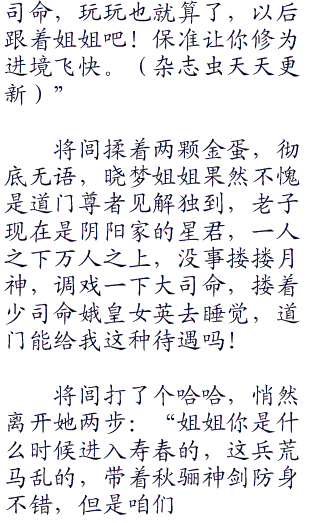 司命，玩玩也就算了，以后
跟着姐姐吧！保准让你修为
进境飞快。（杂志虫天天更
新）”
将闾揉着两颗金蛋，彻
底无语，晓梦姐姐果然不愧
是道门尊者见解独到，老子
现在是阴阳家的星君，一人
之下万人之上，没事搂搂月
神，调戏一下大司命，搂着
少司命娥皇女英去睡觉，道
门能给我这种待遇吗！
将闾打了个哈哈，悄然
离开她两步：“姐姐你是什
么时候进入寿春的，这兵荒
马乱的，带着秋骊神剑防身
不错，但是咱们